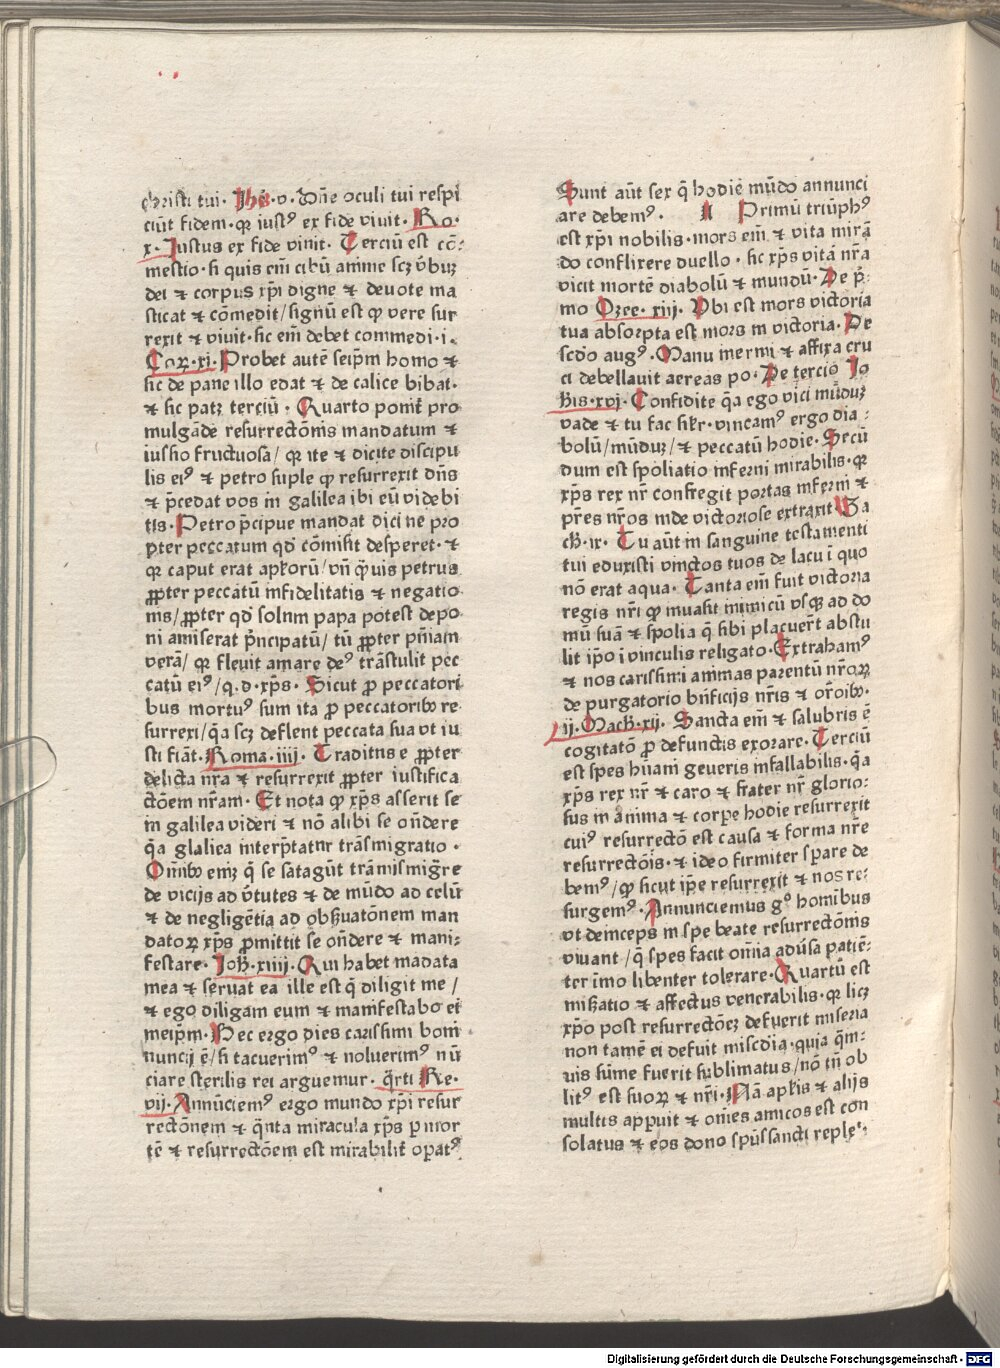 christi tui. Ihe. v. Dn̄e oculi tui respi
ciūt fidem. qꝛ iustꝰ ex fide viuit. Ro.
x. Iustus ex fide viuit. Terciū est cō-
mestio. si quis em̄ cibū anime scꝫ v̄buꝫ
dei ⁊ corpus xp̄i digne ⁊ deuote ma
sticat ⁊ cōmedit/ signū est ꝙ vere sur
rexit ⁊ viuit. sic em̄ debet commedi. i.
Coꝝ. xi. Probet autē seip̄m homo ⁊
sic de pane illo edat ⁊ de calice bibat.
⁊ sic patꝫ terciū. Quarto ponit̄ pro
mulgāde resurrectōnis mandatum ⁊
iussio fructuosa/ qꝛ ite ⁊ dicite discipu
lis eiꝰ ⁊ petro suple ꝙ resurrexit dn̄s
⁊ p̄cedat vos in galilea ibi eū videbi
tis. Petro p̄cipue mandat dici ne pro
pter peccatum qd̄ cōmisit desperet. ⁊
qꝛ caput erat apl̄orū/ vn̄ q̄uis petrus
ꝓpter peccatū infidelitatis ⁊ negatio
nis/ ꝓpter qd̄ solum papa potest depo
ni amiserat p̄ncipatū/ tn̄ ꝓpter pn̄iam
verā/ qꝛ fleuit amare deꝰ trāstulit pec
catū eiꝰ/ q. d. xp̄s. Sicut ꝓ peccatori
bus mortuꝰ sum ita ꝓ peccatoribꝰ re
surrexi/ q̄a scꝫ deflent peccata sua vt iu
sti fiāt. Roma. iiij. Traditus e ꝓpter
delicta nr̄a ⁊ resurrexit ꝓpter iustifica
tōem nr̄am. Et nota ꝙ xp̄s asserit se
in galilea videri ⁊ nō alibi se on̄dere
q̄a glaliea interp̄tatur trāsmigratio.
Omībꝰ emꝫ q̄ se satagūt trāsmigrare
de vicijs ad v̄tutes ⁊ de mūdo ad celū
⁊ de negligētia ad obẜuatōnem man
datoꝝ xp̄s ꝓmittit se on̄dere ⁊ mani-
festare. Ioh̄. xiiij. Qui habet mādata
mea ⁊ seruat ea ille est q̄ diligit me/
⁊ ego diligam eum ⁊ manifestabo ei
meip̄m. Hec ergo dies carissimi boni
nuncij ē/ si tacuerimꝰ ⁊ noluerimꝰ nū
ciare sterilis rei arguemur. q̄rti Re.
vij. Annūciemꝰ ergo mundo xp̄i resur
rectōnem ⁊ q̄nta miracula xp̄s ꝑ mor
tē ⁊ resurrectōem est mirabilit̄ opatꝰ
Sunt aūt sex q̄ hodie mūdo annunci
are debemꝰ. Primū triūphꝰ
est xp̄i nobilis. mors em̄ ⁊ vita mirā
do conflixere duello. sic xp̄s vitā nr̄a
vicit mortē diabolū ⁊ mundū. De p̄-
mo Ozee. xiij. Vbi est mors victoria
tua absorpta est mors in victoria. De
scd̄o augꝰ. Manu inermi ⁊ affixa cru
ci debellauit aereas po. De tercio Io
h̄is. xvj. Confidite q̄a ego vici mūduꝫ
vade ⁊ tu fac sil̄r. vincamꝰ ergo dia-
bolū/ mūduꝫ/ ⁊ peccatū hodie. Secū
dum est spoliatio inferni mirabilis. qꝛ
xp̄s rex nr̄ confregit portas inferni ⁊
pr̄es nr̄os inde victoriose extraxit. Za
ch̄. ix. Tu aūt in sanguine testamenti
tui eduxisti vinctos tuos de lacu ī quo
nō erat aqua. Tanta em̄ fuit victoria
regis nr̄i ꝙ inuasit inimicū vsqꝫ ad do
mū suā ⁊ spolia q̄ sibi placuer̄t abstu
lit ip̄o ī vinculis religato. Extrahamꝰ
⁊ nos carissimi animas parentū nr̄oꝝ
de purgatorio bn̄ficijs nr̄is ⁊ or̄oibꝰ.
ij. Mach̄. xij. Sancta em̄ ⁊ salubris ē
cogitatō ꝓ defunctis exorare. Terciū
est spes hūani generis infallabilis. q̄a
xp̄s rex nr̄ ⁊ caro ⁊ frater nr̄ glorio-
sus in anima ⁊ corpe hodie resurrexit
cuiꝰ resurrectō est causa ⁊ forma nr̄e
resurrectōis. ⁊ ideo firmiter sperare de
bemꝰ/ ꝙ sicut ip̄e resurrexit ⁊ nos re-
surgemꝰ. Annunciemus gͦ homībus
vt deinceps in spe beate resurrectōnis
viuant/ q̄ spes facit om̄ia adūsa patiē-
ter īmo libenter tolerare. Quartū est
misẜatio ⁊ affectus venerabilis. qꝛ licꝫ
xp̄o post resurrectōeꝫ defuerit miseria
non tamē ei defuit misc̄dia. quia q̄m-
uis sūme fuerit sublimatus/ nō tn̄ ob
litꝰ est suoꝝ ⁊ nr̄i. Nā apl̄is ⁊ alijs
multis apꝑuit ⁊ om̄es amicos est con
solatus ⁊ eos dono spūssancti repleꝰ.
Digitalisierung gefördert durch die Deutsche Forschungsgemeinschaft - DFG